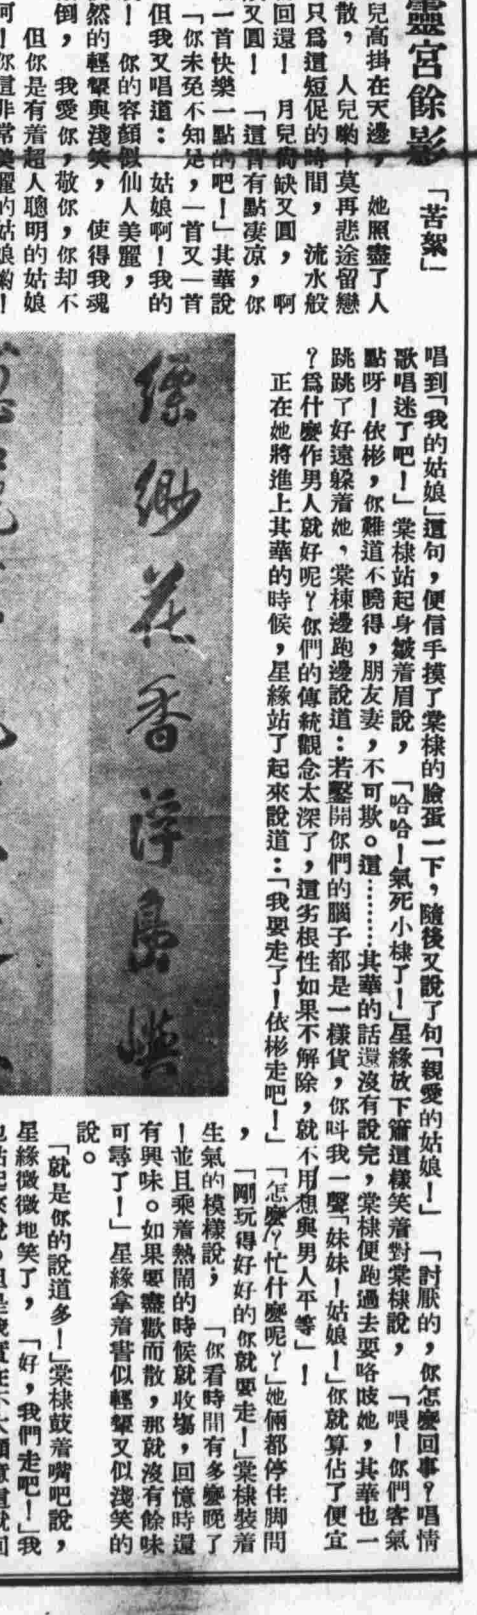 靈宮餘影
「苦絮」
兒高掛在天邊,她照盡了人
散,人兒喲!莫再悲途留戀
只為這短促的時間,流水般
回還!月兒尚缺又圓,啊
又圓!「這首有點凄凉,你
一首快樂一點的吧!」其華說
「你未免不知足,一首又一首
但我又唱道:姑娘啊!我的
!你的容顏似仙人美麗,
然的輕顰與淺笑,使得我魂
倒,我愛你,敬你,你却不
但你是有着超人聰明的姑娘
可!你這非常美麗的姑娘喲!
唱到「我的姑娘」這句,便信手摸了棠棣的臉蛋一下,隨後又說了句「親愛的姑娘!」「討厭的,你怎麼回事?唱情
歌唱迷了吧!」棠棣站起身皺着眉說,「哈哈!氣死小棣了!」星緣放下簫這樣笑着對棠棣說,「喂!你們客氣
點呀!依彬,你難道不曉得,朋友妻,不可欺。這………其華的話還沒有說完,棠棣便跑過去要咯吱她,其華也一
跳跳了好遠躲着她,棠棣邊跑邊說道:若鑿開你們的腦子都是一樣貨,你呌我一聲「妹妹!姑娘!」你就算佔了便宜
?為什麼作男人就好呢?你們的傳統觀念太深了,這劣根性如果不解除,就不用想與男人平等」!
正在她將進上其華的時候,星緣站了起來說道:「我要走了!依彬走吧!」「怎麼?忙什麼呢?」她倆都停住脚問
,「剛玩得好好的你就要走!」棠棣裝着
生氣的模樣說,「你看時間有多麼晚了
!並且乘着熱鬧的時候就收塲,回憶時還
有興味。如果要盡歡而散,那就沒有餘味
可尋了!」星緣拿着嘗似輕顰又似淺笑的
說。
「就是你的說道多!」棠棣鼓着嘴吧說,
星緣微微地笑了,「好,我們走吧!」我
縹緲花香浮島嶼